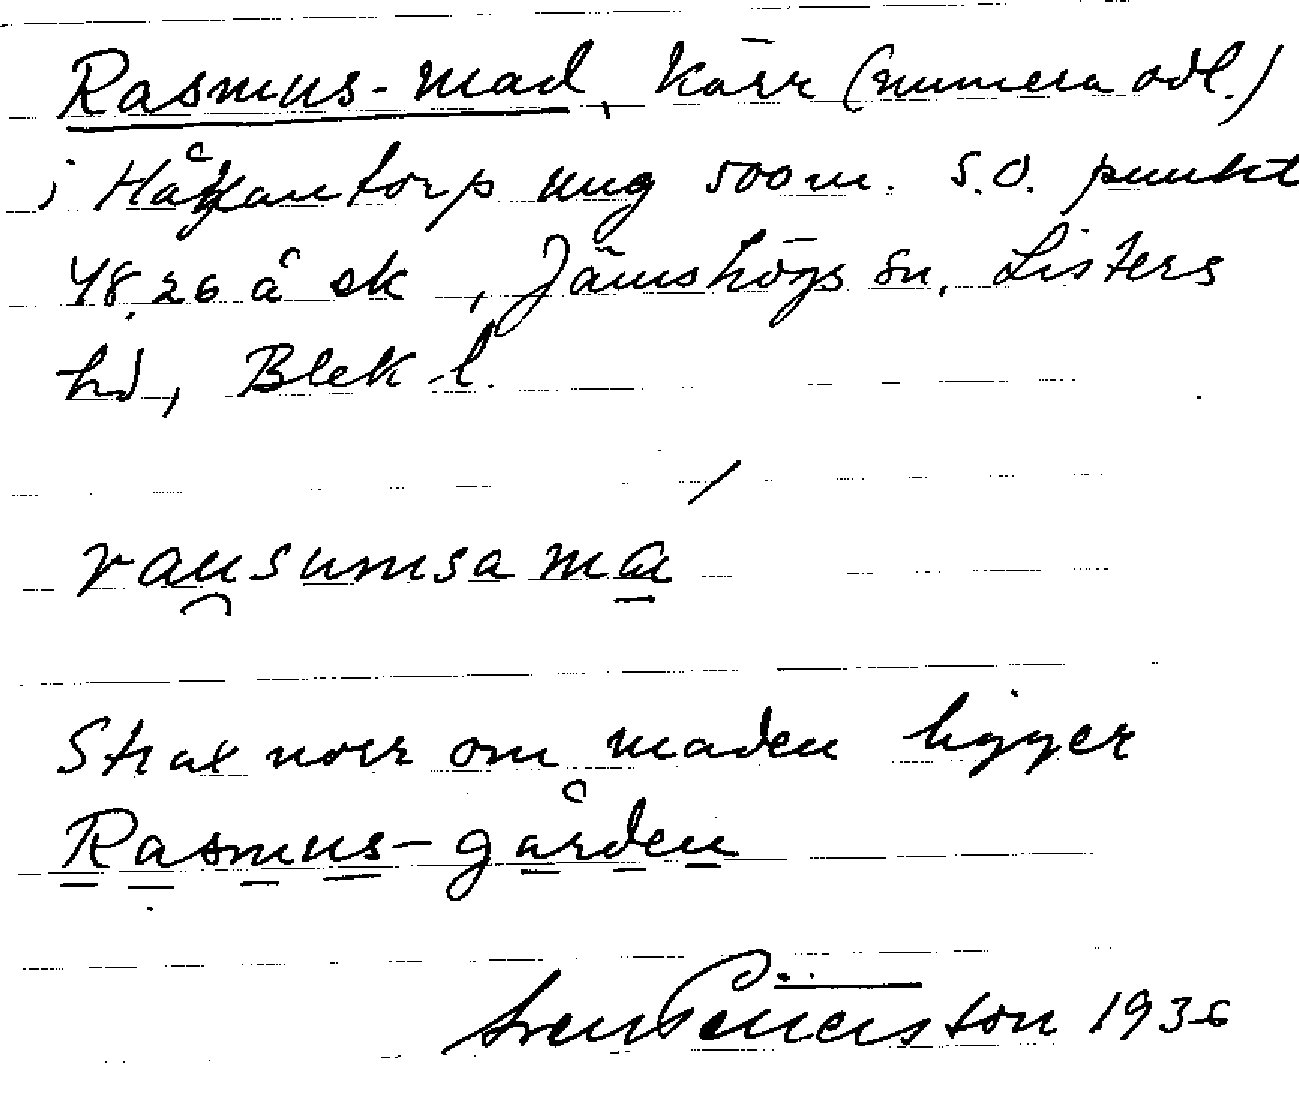 Rasmus-mad, kärr (numera odl.)
i Håkantorp ung 500 m. S.O. punkt
48,26 å ek, Jämshögs sn, Listers
hd, Blek. l.
rausumsa ma
Strax norr om maden ligger
Rasmus-gården
Sven 1936